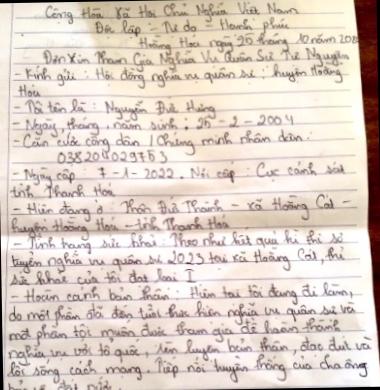 Cộng Hòa Xã Hội Chủ Nghĩa Việt Nam
Độc lập - Tự do - Hạnh phúc
Hoằng Hóa ngày 25 tháng 10 năm
Đơn Xin Tham Gia Nghĩa Vụ Quân Sự Tự Nguyện
- Kính gửi : Hội đồng nghĩa vụ quân sự : huyện Hoằng
Hóa
- Tôi tên là : Nguyễn Đức Hưng
- Ngày, tháng, năm sinh : 25 - 2 - 2004
- Căn cước công dân / Chứng minh nhân dân :
038204029753
- Ngày cấp 7-1-2022, Nơi cấp : Cục cảnh sát
tỉnh Thanh Hoá
- Hiện đang ở Thôn Đức Thành - xã Hoằng Cát -
huyện Hoằng Hoá - tỉnh Thanh Hoá
- Tình trạng sức khỏe : Theo như kết quả kì thi sơ
tuyển nghĩa vụ quân sự 2023 tại xã Hoằng Cát, thì
sức khoẻ của tôi đạt loại I
- Hoàn cảnh bản thân : Hiện tại tôi đang đi làm,
do một phần đã đến tuổi thực hiện nghĩa vụ quân sự và
một phần tôi muốn được tham gia để hoàn thành
nghĩa vụ với tổ quốc, rèn luyện bản thân, đạo đức và
lối sống cách mạng. Tiếp nối truyền thống của cha ông